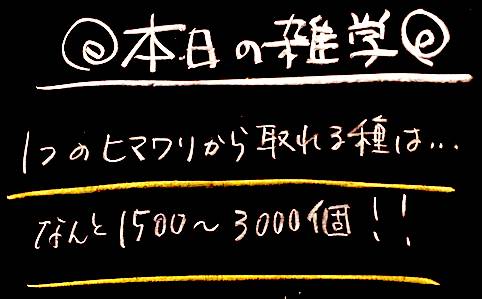 本日の雑学
1つのヒマワリから取れる種は…
なんと1500〜3000個!!